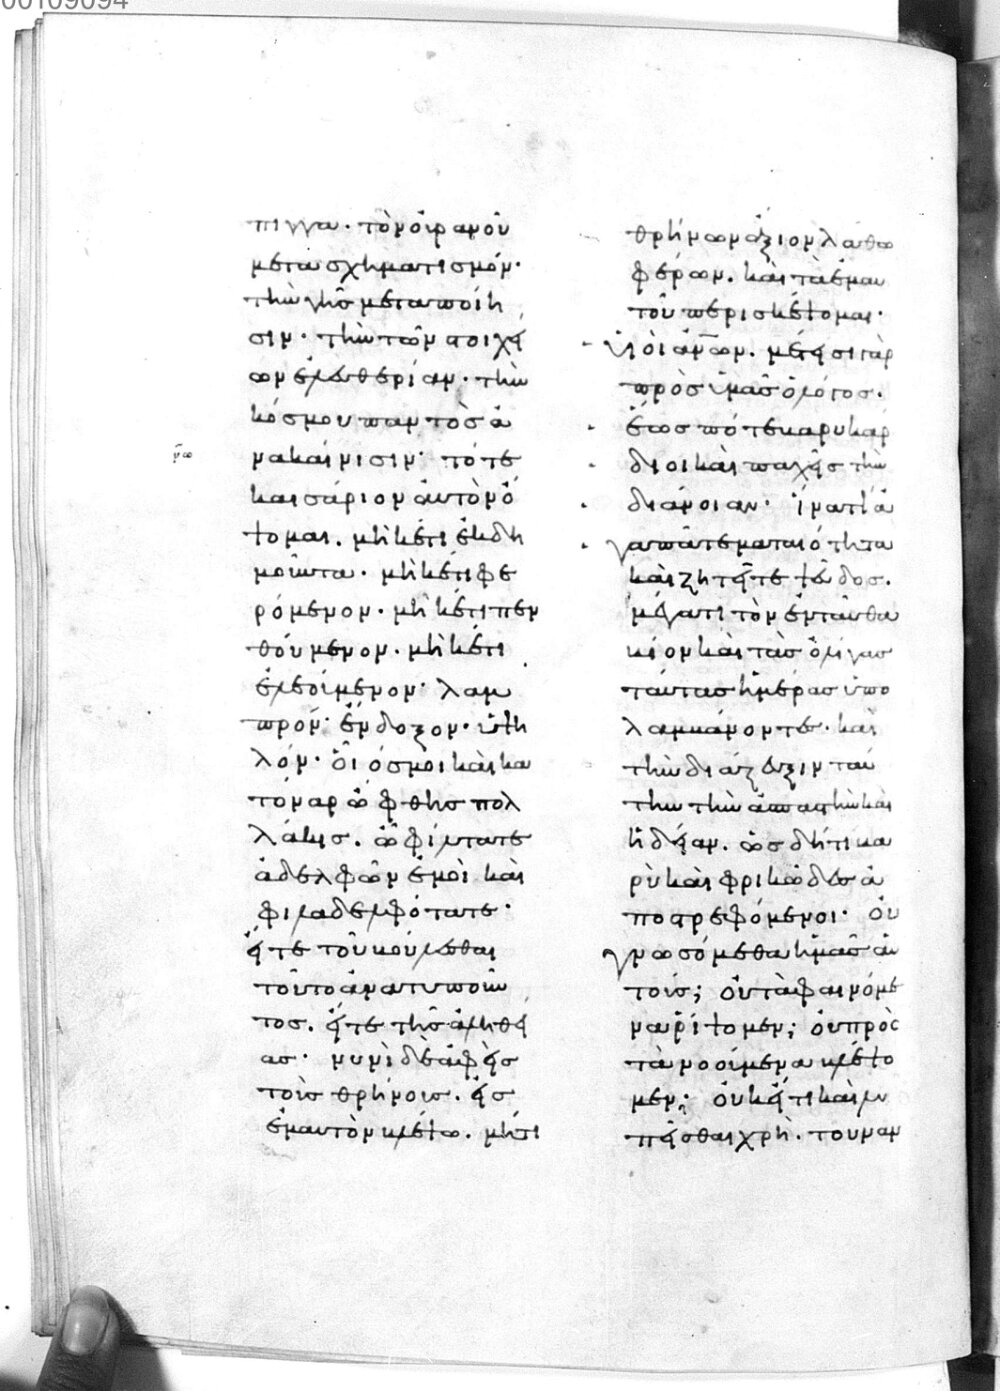 00109094
πιγγα· τὸν οὐρανοῦ
μετασχηματισμόν·
τὴν γῆς μεταποίη
σιν· τὴν τῶν στοιχεί
ων ἐλευθερίαν· τὴν
κόσμου παντὸς ἀ
νακαίνισιν· τότε
καισάριον αὐτὸν ὄ
ψομαι. μηκέτι ἐκδη
μοῦντα. μηκέτι φε
ρόμενον· μηκέτι πεν
θούμενον. μηκέτι
ἐλεούμενον· λαμ
προν· ἔνδοξον· ὑψη
λόν· οἷός μοι καὶ κα
τόναρ ὤφθης πολ
λάκις. ὦ φίλτατε
ἀδελφῶν ἐμοὶ καὶ
φιλαδελφότατε·
εἴτε τοῦ βούλεσθαι
τοῦτο ἀνατυποῦν
τος. εἴτε τῆς ἀληθεί
ας· νυνὶ δὲ ἀφεὶς
τοὺς θρήνους. εἰς
ἐμαυτὸν βλέψω. μήτι
θρήνων ἄξιον λάθω
φέρων. καὶ τὰ ἐμαυ
τοῦ περισκέψομαι·
υἱοὶ ἀν̅ω̅ν. μέτεισι γὰρ
πρὸς ὑμᾶς ὁ λόγος.
ἕως πότε βαρυκάρ
διοι καὶ παχεῖς τὴν
διάνοιαν· ἱνατί ἀ
γαπᾶτε ματαιότητα
καὶ ζητεῖτε ψεῦδος.
μέγα τι τὸν ἐνταῦθα
βίον καὶ τὰς ὀλίγας
ταύτας ἡμέρας ὑπο
λαμβάνοντες· καὶ
τὴν διάζευξιν ταύ
την τὴν ἀσπαστὴν καὶ
ἡδεῖαν. ὡς δή τι βα
ρὺ καὶ φρικῶδες ἀ
ποστρεφόμενοι· οὐ
γνωσόμεθα ἡμᾶς αὐ
τούς; οὐ τὰ φαινόμε
να ῥίψομεν; οὐ πρὸς
τὰ νοούμενα βλέψο
μεν; οὐκ εἴ τι καὶ λυ
πεῖσθαι χρὴ. τοὐναν